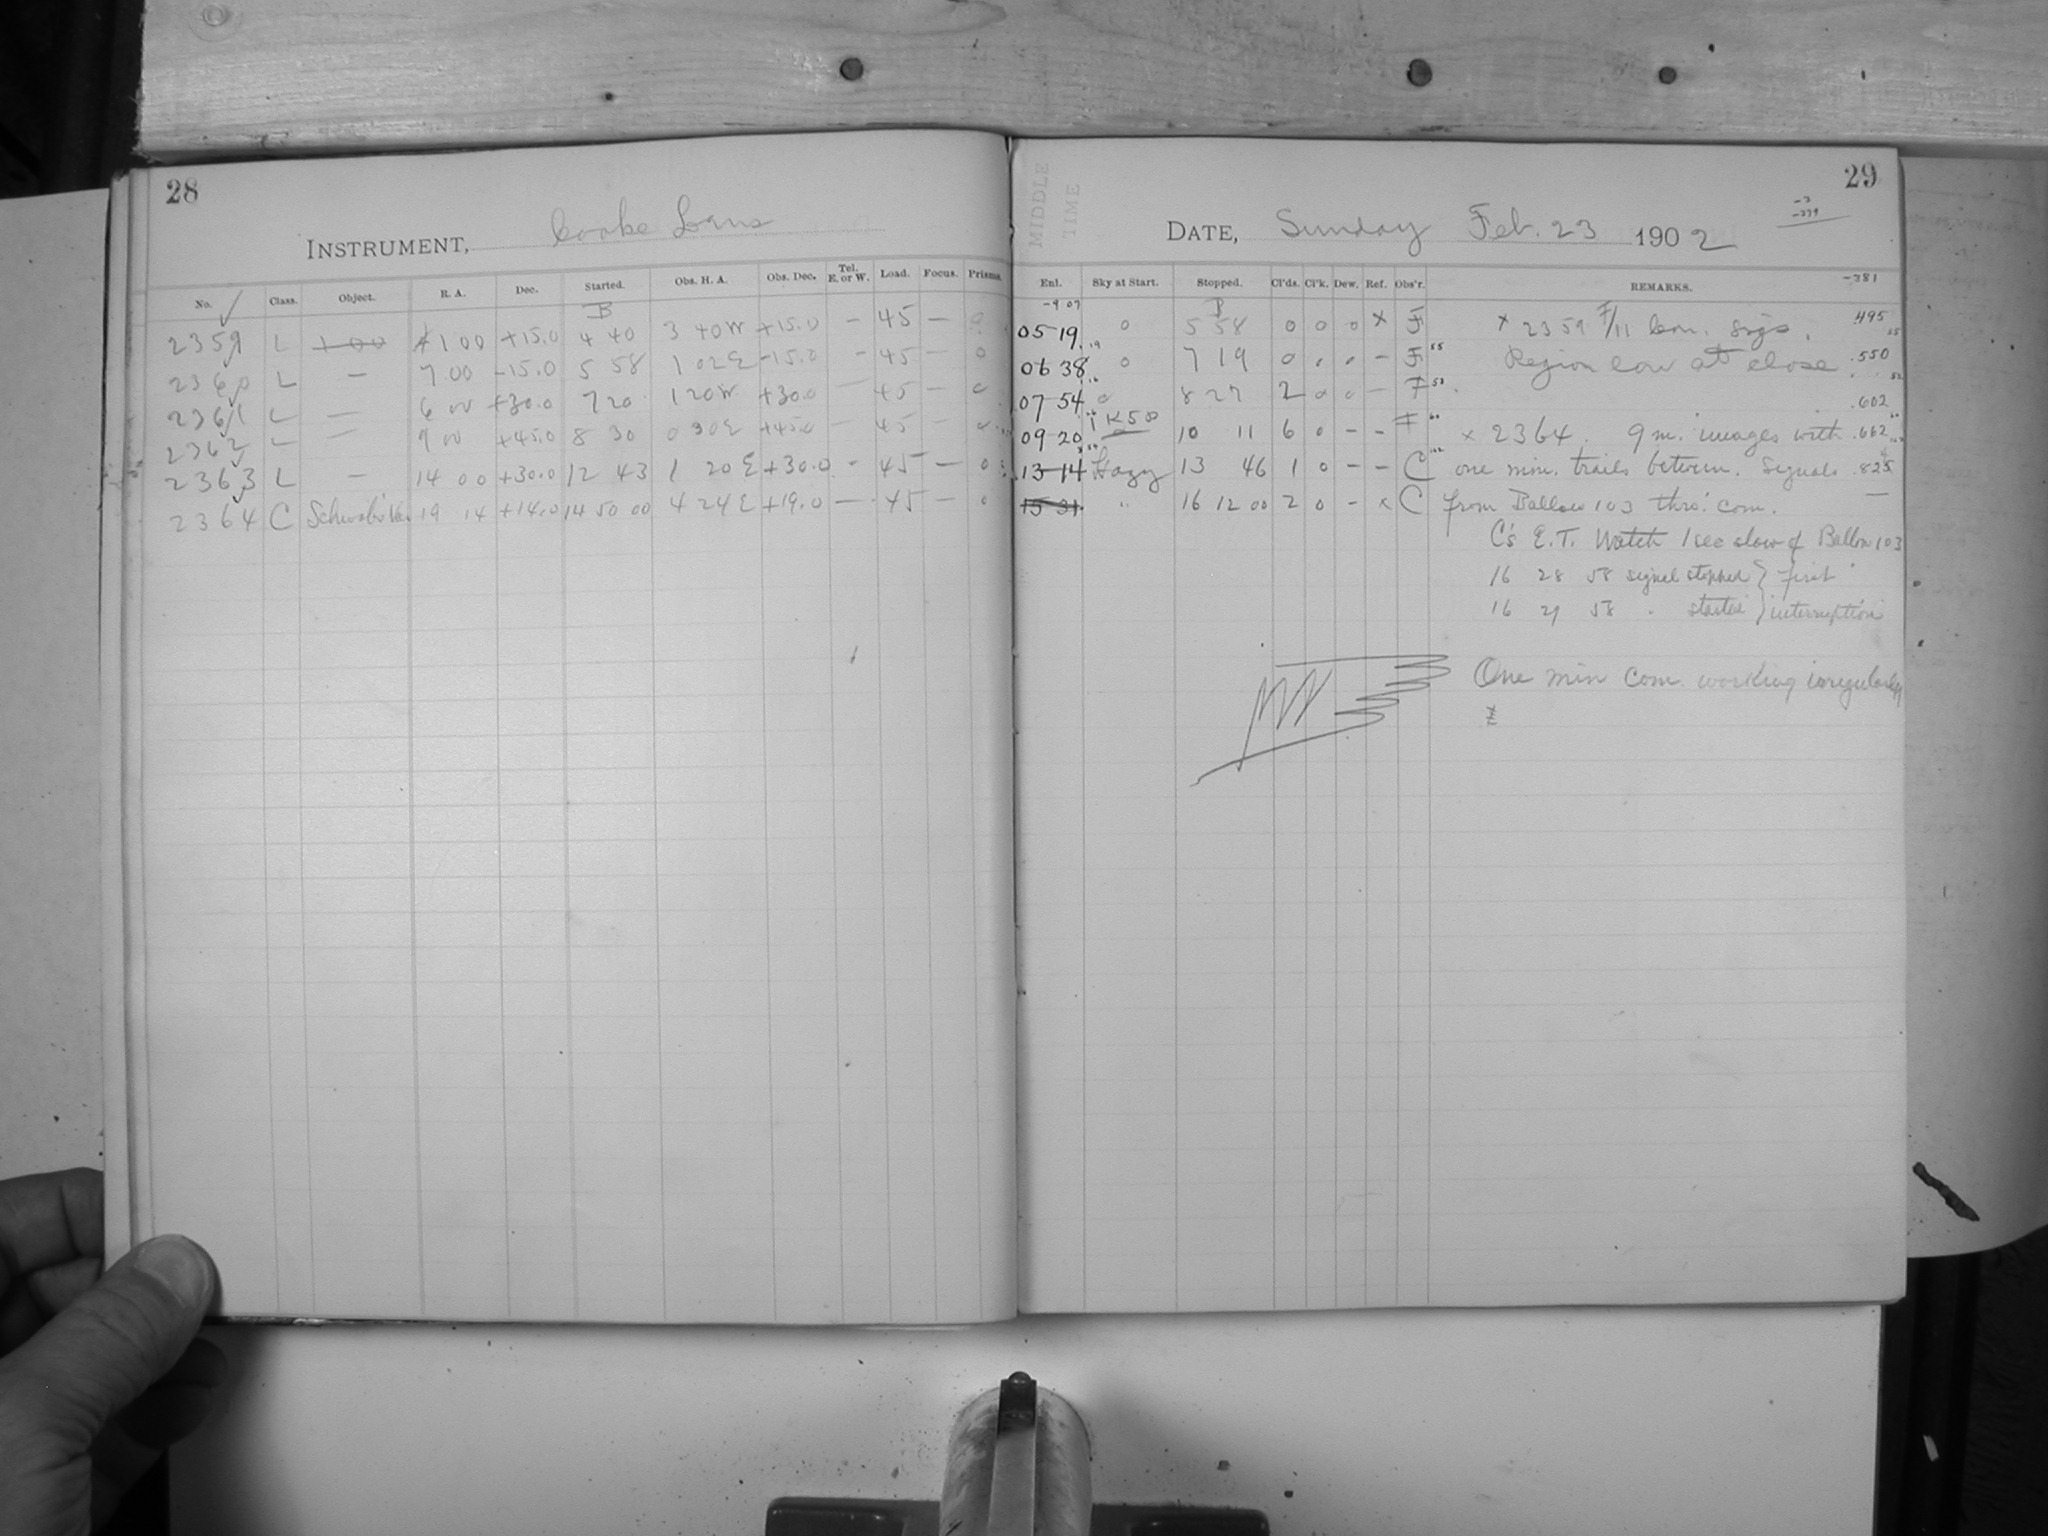 28
INSTRUMENT, Cooke Lens
No. Class. Object. R. A. Dec. Started. Obs. H. A. Obs. Dec. Tel. E. or W. Load. Focus. Prisms.
2359 L 1 00 4 1 00 +15.0 4 40 3 40 W +15.0 – 45 – 0
2360 L – 7 00 -15.0 5 58 1 02 E -15.0 – 45 – 0
2361 L – 6 00 +30.0 7 20 1 20 W +30.0 45 – 0
2362 L – 9 00 +45.0 8 30 0 30 E +45.0 – 45 – 0
2363 L – 14 00 +30.0 12 43 1 20 E +30.0 – 45 – 0
2364 C 19 14 +14.0 14 50 00 4 24 E +19.0 – 45 – 0
MIDDLE TIME
29
DATE, Sunday Feb. 23 1902
Enl. Sky at Start. Stopped. Cl'ds. Cl'k. Dew. Ref. Obs'r. REMARKS. -381
-9 07
05-19 0 5 58 0 0 0 x F x 2359 F/11 Com. Sigs. .495
06 38 0 7 19 0 0 0 – F 55 Region low at close .550
07-54 0 8 27 2 0 0 – F 52 .602
09-20 1 K50 10 11 6 0 – – F 60 x 2364. 9 m. images with .662
13-14 Hazy 13 46 1 0 – – C one min. trails between. Signals .825
15-31 " 16 12 00 2 0 – x C from Ballou 103 thro' com. –
C's E.T. Watch 1 sec slow of Ballou 103
16 28 58 signal stopped } first
16 29 58 " started } interruption
One min com. working irregularly